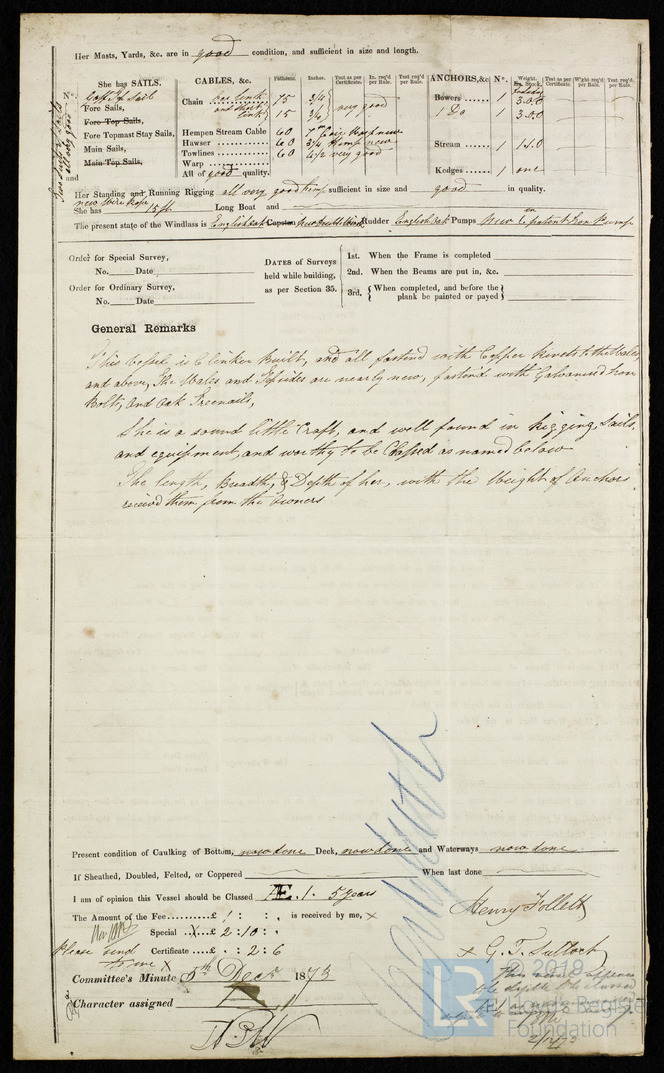 Her Masts, Yards, &c. are in good condition, and sufficient in size and length.
She has SAILS.
Gaff Top Sail
Fore Sails,
Fore Top Sails,
Fore Topmast Stay Sails,
Main Sails,
Main Top Sails,
and
all very good
CABLES, &c. Fathoms. Inches. Test as per Certificate. In. req'd per Rule. Test req'd per Rule.
Chain 75 3/4 very good
and short link 15 3/4
Hempen Stream Cable 60 7 new
Hawser 60 3 1/4 Hemp new
Towlines 60 4 1/2 very good
Warp
All of good quality.
ANCHORS, &c Nº. Weight. Ex. Stock. Test as per Certificate. W'ght req'd per Rule. Test req'd per Rule.
Bowers 1 3.0.0
1 Do 1 3.0.0
Stream 1 1.1.0
Kedges 1 one
Her Standing and Running Rigging all very good hemp sufficient in size and good in quality.
new Wire Rope
She has 15 ft Long Boat and
The present state of the Windlass is English Oak Capstan Rudder English Oak Pumps New patent Iron Pump
Order for Special Survey,
No. Date
Order for Ordinary Survey,
No. Date
DATES of Surveys
held while building,
as per Section 35.
1st. When the Frame is completed
2nd. When the Beams are put in, &c.
3rd, When completed, and before the
plank be painted or payed
General Remarks
This Vessel is Clinker Built, and all fastend with Copper Rivets to the Wales,
and above, The Wales and Topsides are nearly new, fastend with Galvanised Iron
Bolts, and Oak Treenails,
She is a sound little Craft, and well found in Rigging, Sails,
and equipment, and worthy to be Classed as named below
The length, Breadth, & Depth of her, with the Weight of Anchors
received them from the Owners
Present condition of Caulking of Bottom, now done Deck, now done and Waterways now done
If Sheathed, Doubled, Felted, or Coppered When last done
I am of opinion this Vessel should be Classed Æ. 1. 5 years
Henry Follett
The Amount of the Fee £ 1 : : , is received by me, X
Special X £ 2 : 10 : .
Certificate £ . : 2 : 6
Please send
to me X
X G. T. Sulloch
Committee's Minute 5th Decr 1873
Character assigned
© 2019
LR Lloyd's Register
Foundation